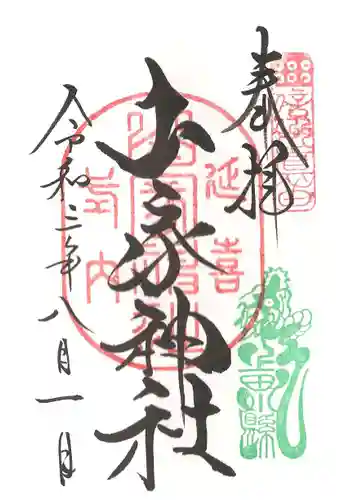 奉拝
延喜
山家神社
式内
令和三年八月一日